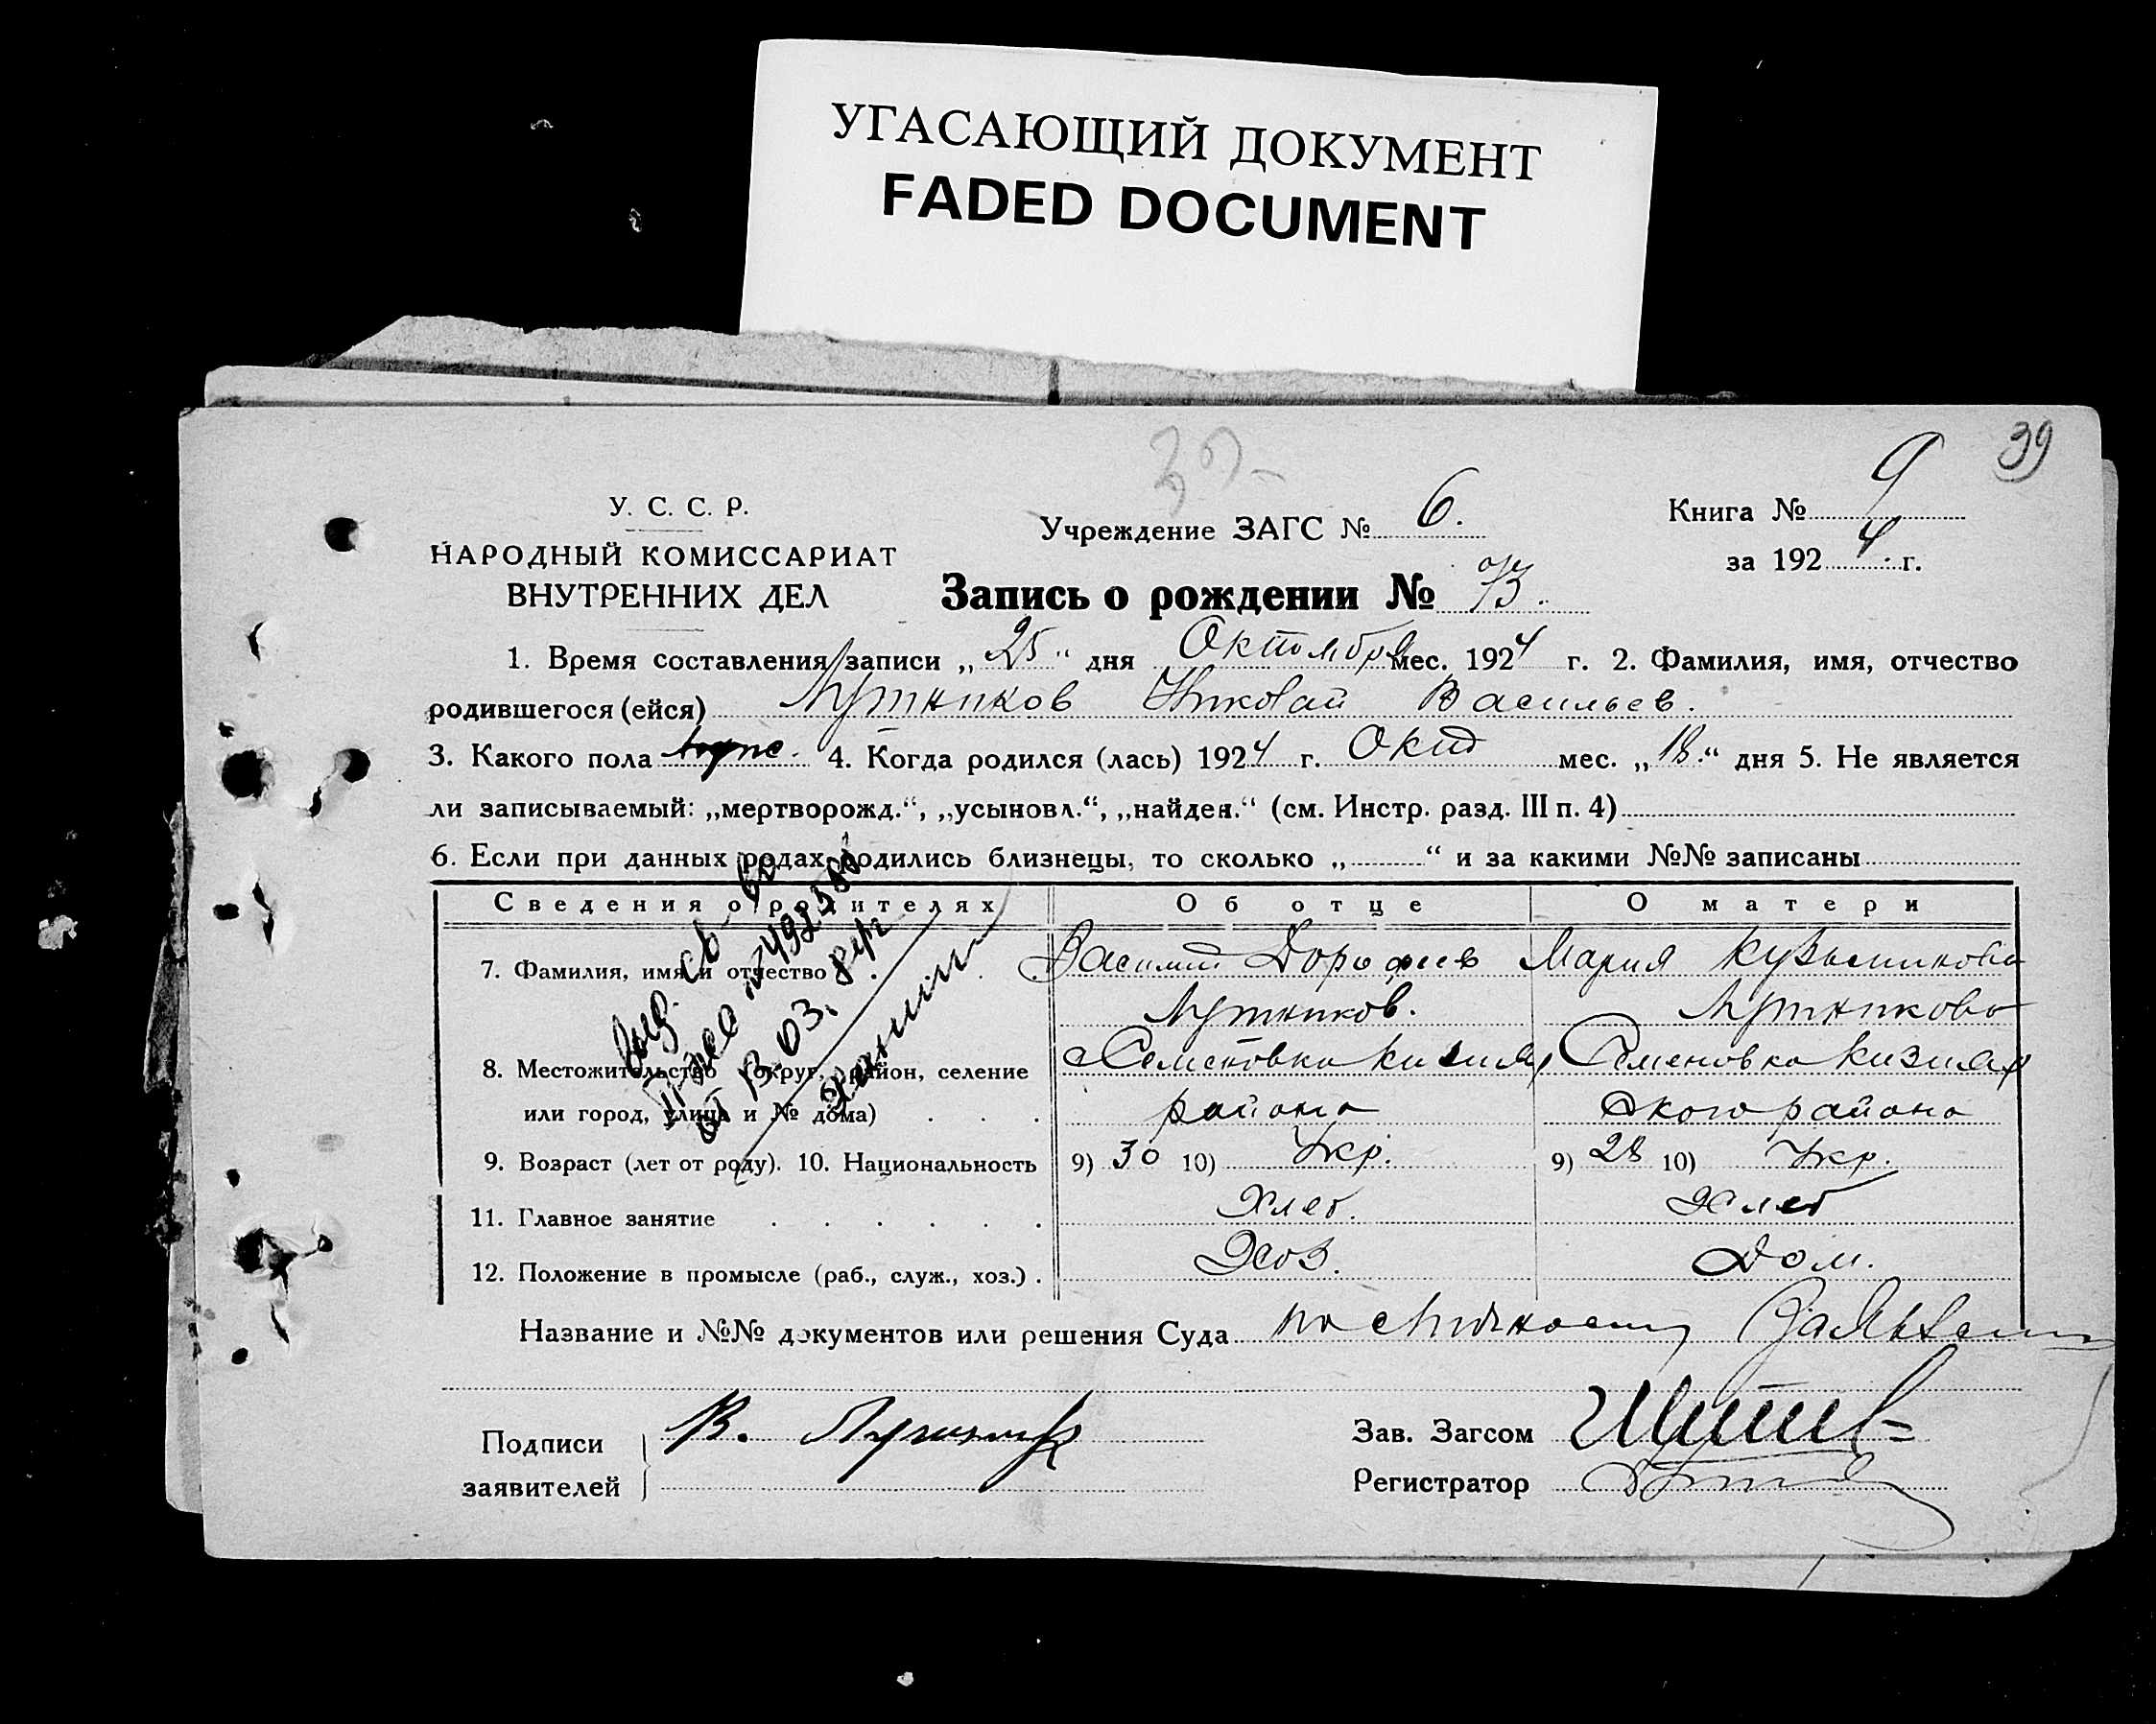 УГАСАЮЩИЙ ДОКУМЕНТ
FADED DOCUMENT
39
У. С. С. Р.
НАРОДНЫЙ КОМИССАРИАТ
ВНУТРЕННИХ ДЕЛ
Учреждение ЗАГС № 6.
Книга № 9
за 1924 г.
Запись о рождении № 73.
1. Время составления записи „25“ дня Октомбря мес. 1924 г. 2. Фамилия, имя, отчество
родившегося (ейся) Лутников Николай Васильев.
3. Какого пола муж. 4. Когда родился (лась) 1924 г. Окт мес. „18.“ дня 5. Не является
ли записываемый: „мертворожд.“, „усыновл.“, „найден.“ (см. Инстр. разд. III п. 4)
6. Если при данных родах родились близнецы, то сколько „ “ и за какими №№ записаны
Сведения о родителях Об отце О матери
7. Фамилия, имя и отчество Василий Дорофеев Мария Кузьминова
Лутников. Лутникова
8. Местожительство (округ, район, селение Семеновка Кизияр Семеновка Кизияр
или город, улица и № дома) района ского района
9. Возраст (лет от роду). 10. Национальность 9) 30 10) Укр. 9) 28 10) Укр.
11. Главное занятие Хлеб. Хлеб
12. Положение в промысле (раб., служ., хоз.) Хоз. Дом.
выд. св-во
от 13.03.84г
Название и №№ документов или решения Суда по
Подписи
заявителей
В.
Зав. Загсом
Регистратор